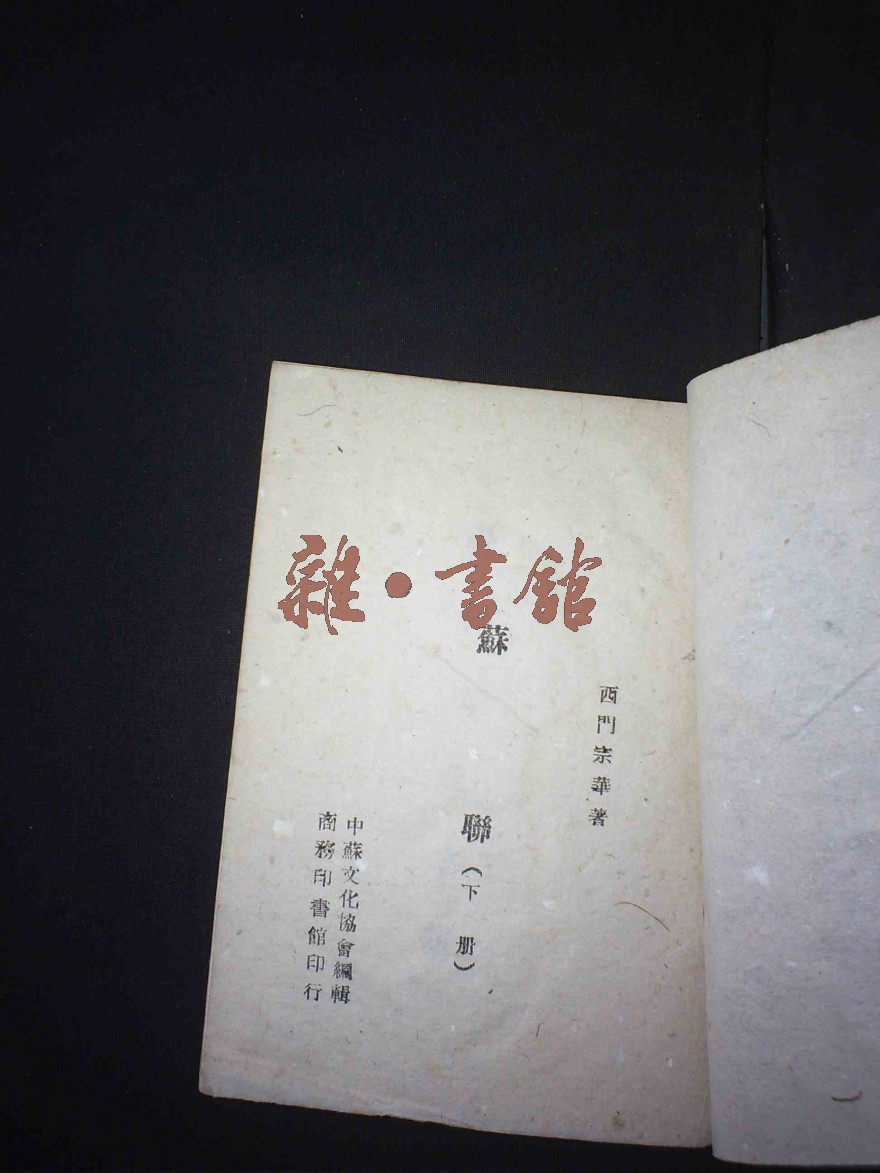 雜·書館
西門宗華著
蘇聯(下册)
中蘇文化協會編輯
商務印書館印行